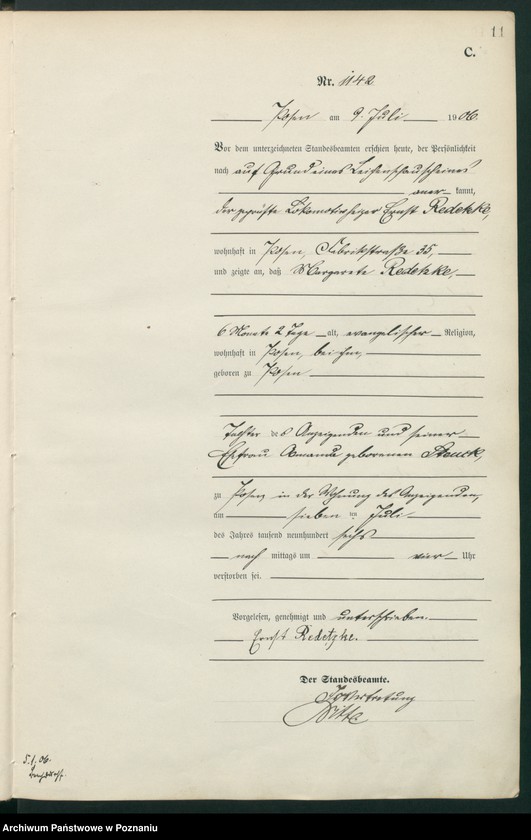 11
C.
Nr. 1142
Posen am 9. Juli 1906.
Vor dem unterzeichneten Standesbeamten erschien heute, der Persönlichkeit
nach auf Grund eines Leichenschauscheines
anerkannt,
der geprüfte Lokomotivheizer Ernst Redetzke,
wohnhaft in Posen, Fabrikstraße 35,
und zeigte an, daß Margarete Redetzke,
6 Monate 2 Tage alt, evangelischer Religion,
wohnhaft in Posen, bei ihm,
geboren zu Posen
Tochter des Anzeigenden und seiner
Ehefrau Amanda geborenen
zu Posen in der Wohnung des Anzeigenden,
am sieben ten Juli
des Jahres tausend neunhundert sechs
nach mittags um vier Uhr
verstorben sei.
Vorgelesen, genehmigt und unterschrieben.
Ernst Redetzke.
Der Standesbeamte.
In Vertretung
5.1.06.
Archiwum Państwowe w Poznaniu